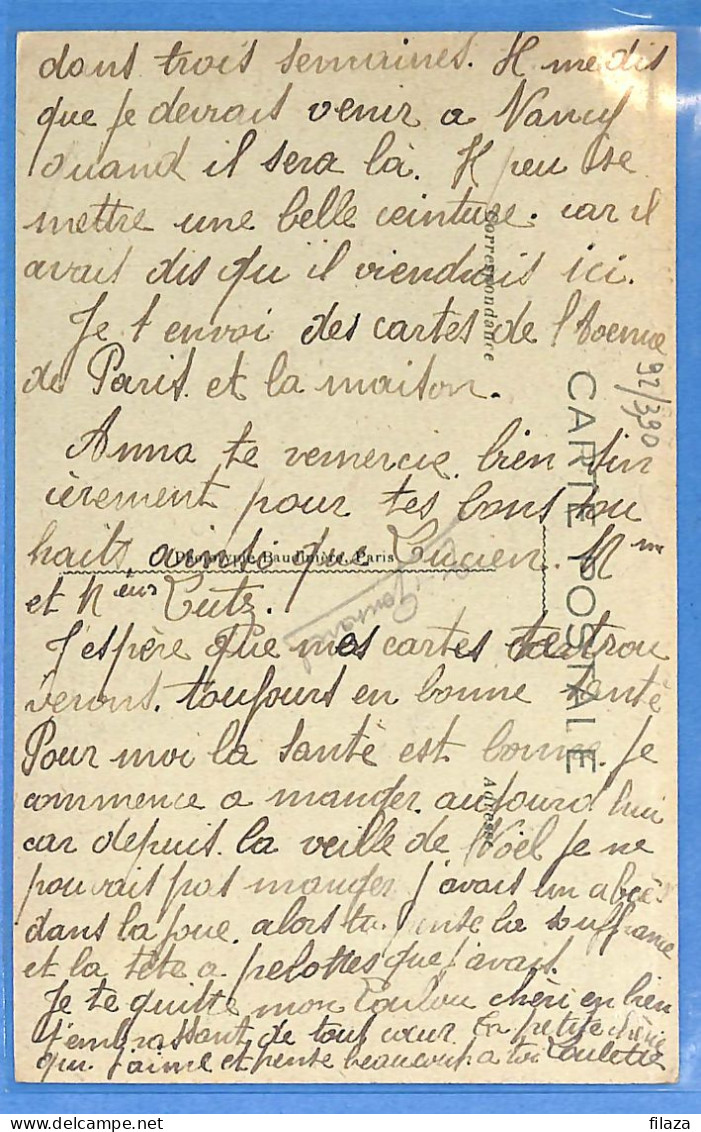 dans trois semaines. Il me dis
que je devrais venir a Nancy
quand il sera là. Il peu se
mettre une belle ceinture. car il
avait dis qu'il viendrais ici.
Je t envoi des cartes de l'Avenue
de Paris et la maison.
Anna te remercie bien sin
cèrement pour tes bons sou
haits, ainsi que Lucien. Mme
et Mr Lutz.
J'espère que mes cartes te trou
verons toujours en bonne santé
Pour moi la santé est bonne. Je
commence a manger aujourd hui
car depuis la veille de Noël je ne
pouvais pas manger j'avais un abcès
dans la joue, alors tu pense la souffrance
et la tête a pelottes que j'avais.
Je te quitte mon Loulou chéri en bien
t'embrassant de tout cœur Ta petite chérie
qui t'aime et pense beaucoup a toi Loulette
Correspondance
CARTE POSTALE
Adresse
Phototypie Baudinière, Paris
92/390
filaza